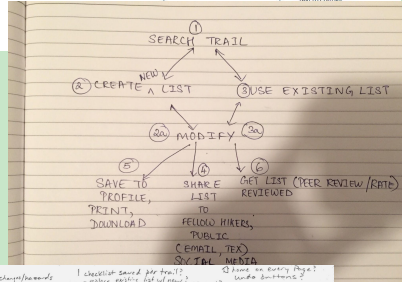 ①
SEARCH TRAIL
② CREATE NEW ^ LIST
③ USE EXISTING LIST
②a MODIFY ③a
⑤
SAVE TO
PROFILE,
PRINT,
DOWNLOAD
④
SHARE
LIST
TO
FELLOW HIKERS,
PUBLIC
(EMAIL, TEX)
SOCIAL MEDIA
⑥
GET LIST (PEER REVIEW/RATE)
REVIEWED
1 checklist saved per trail?
home on every Page?
undo buttons?